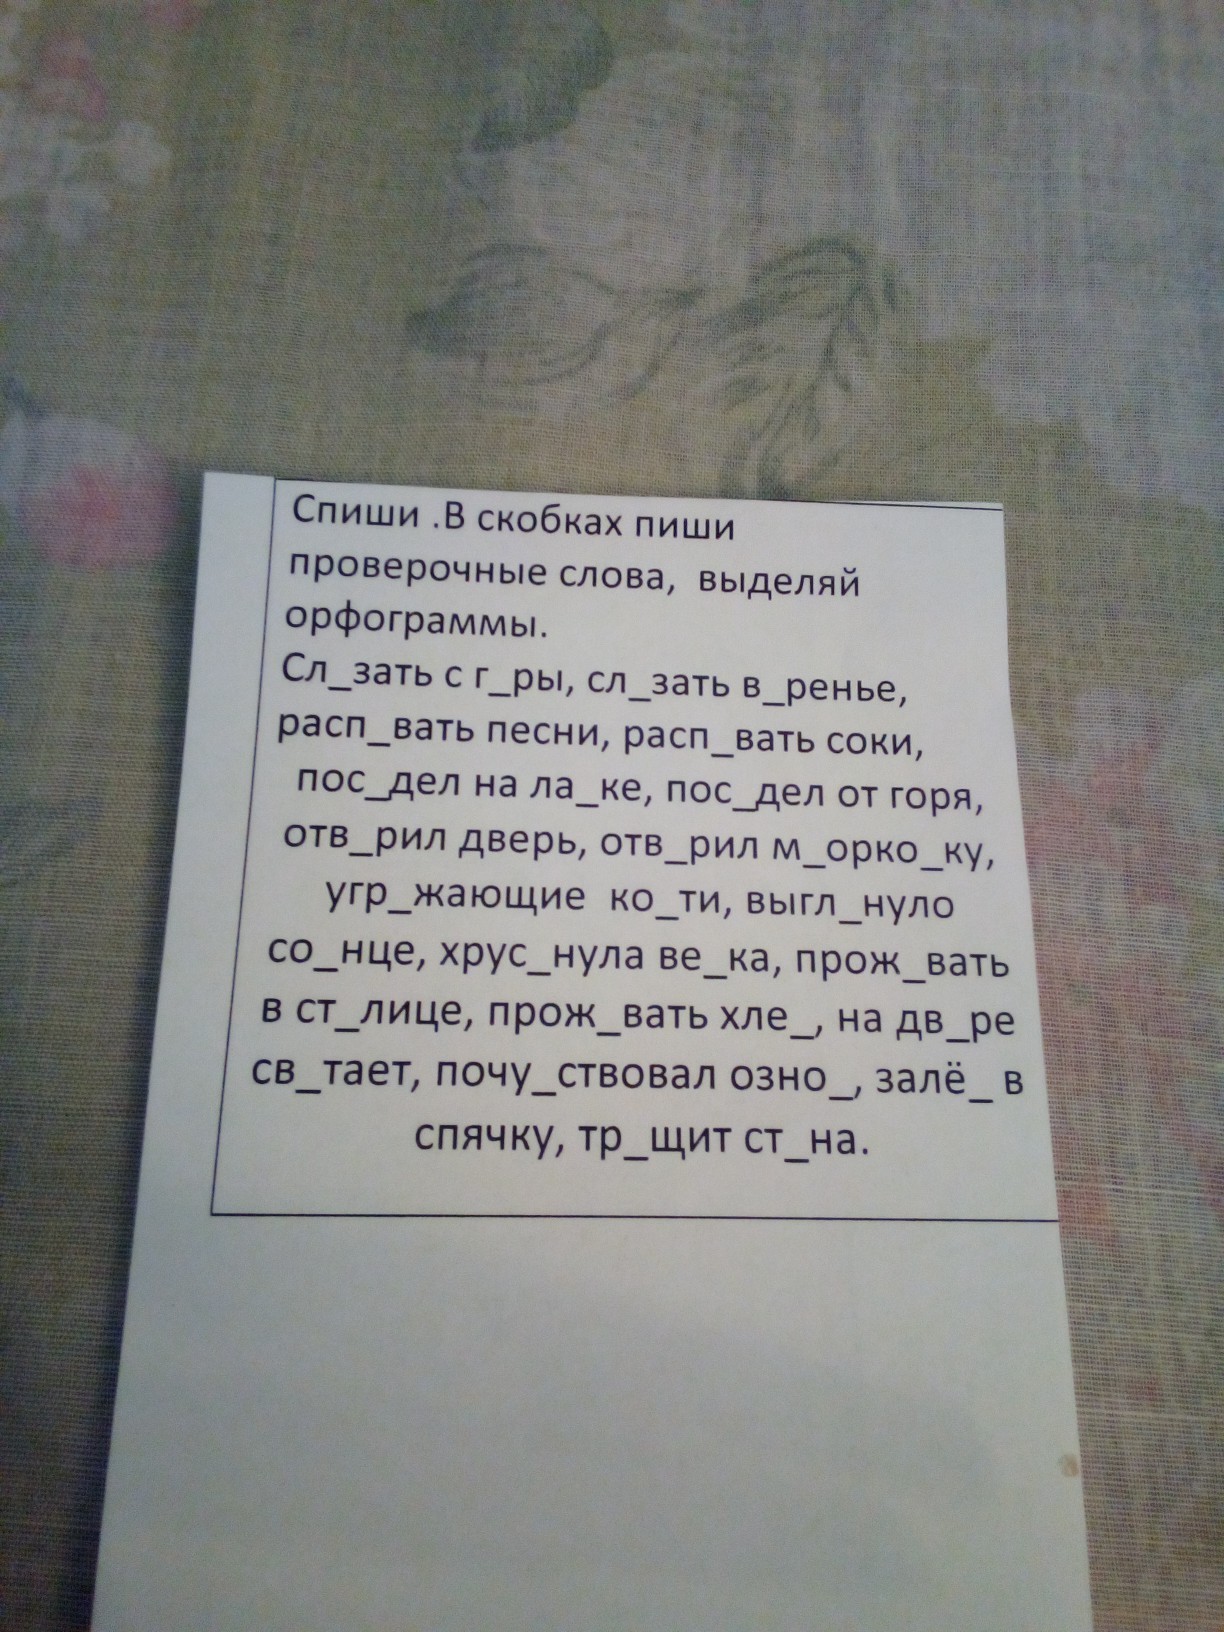 Спиши .В скобках пиши
проверочные слова, выделяй
орфограммы.
Сл_зать с г_ры, сл_зать в_ренье,
расп_вать песни, расп_вать соки,
пос_дел на ла_ке, пос_дел от горя,
отв_рил дверь, отв_рил м_орко_ку,
угр_жающие ко_ти, выгл_нуло
со_нце, хрус_нула ве_ка, прож_вать
в ст_лице, прож_вать хле_, на дв_ре
св_тает, почу_ствовал озно_, залё_ в
спячку, тр_щит ст_на.